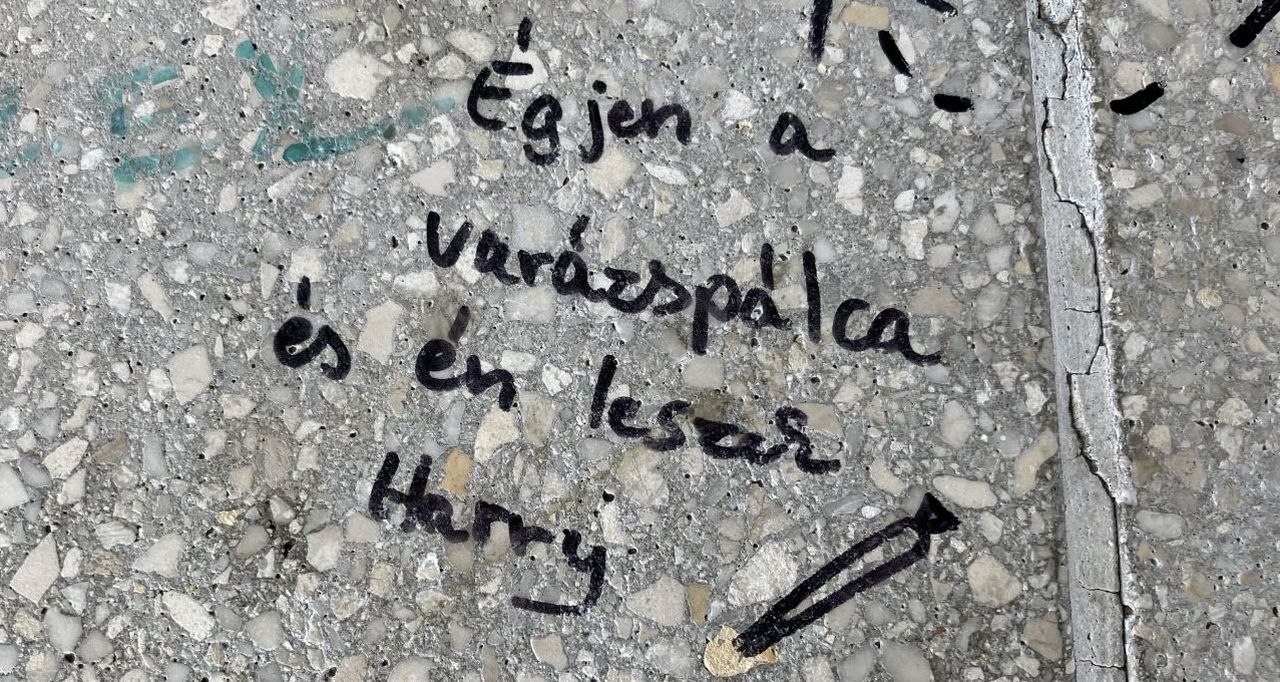 Égjen a
varázspálca
és én leszek
Harry